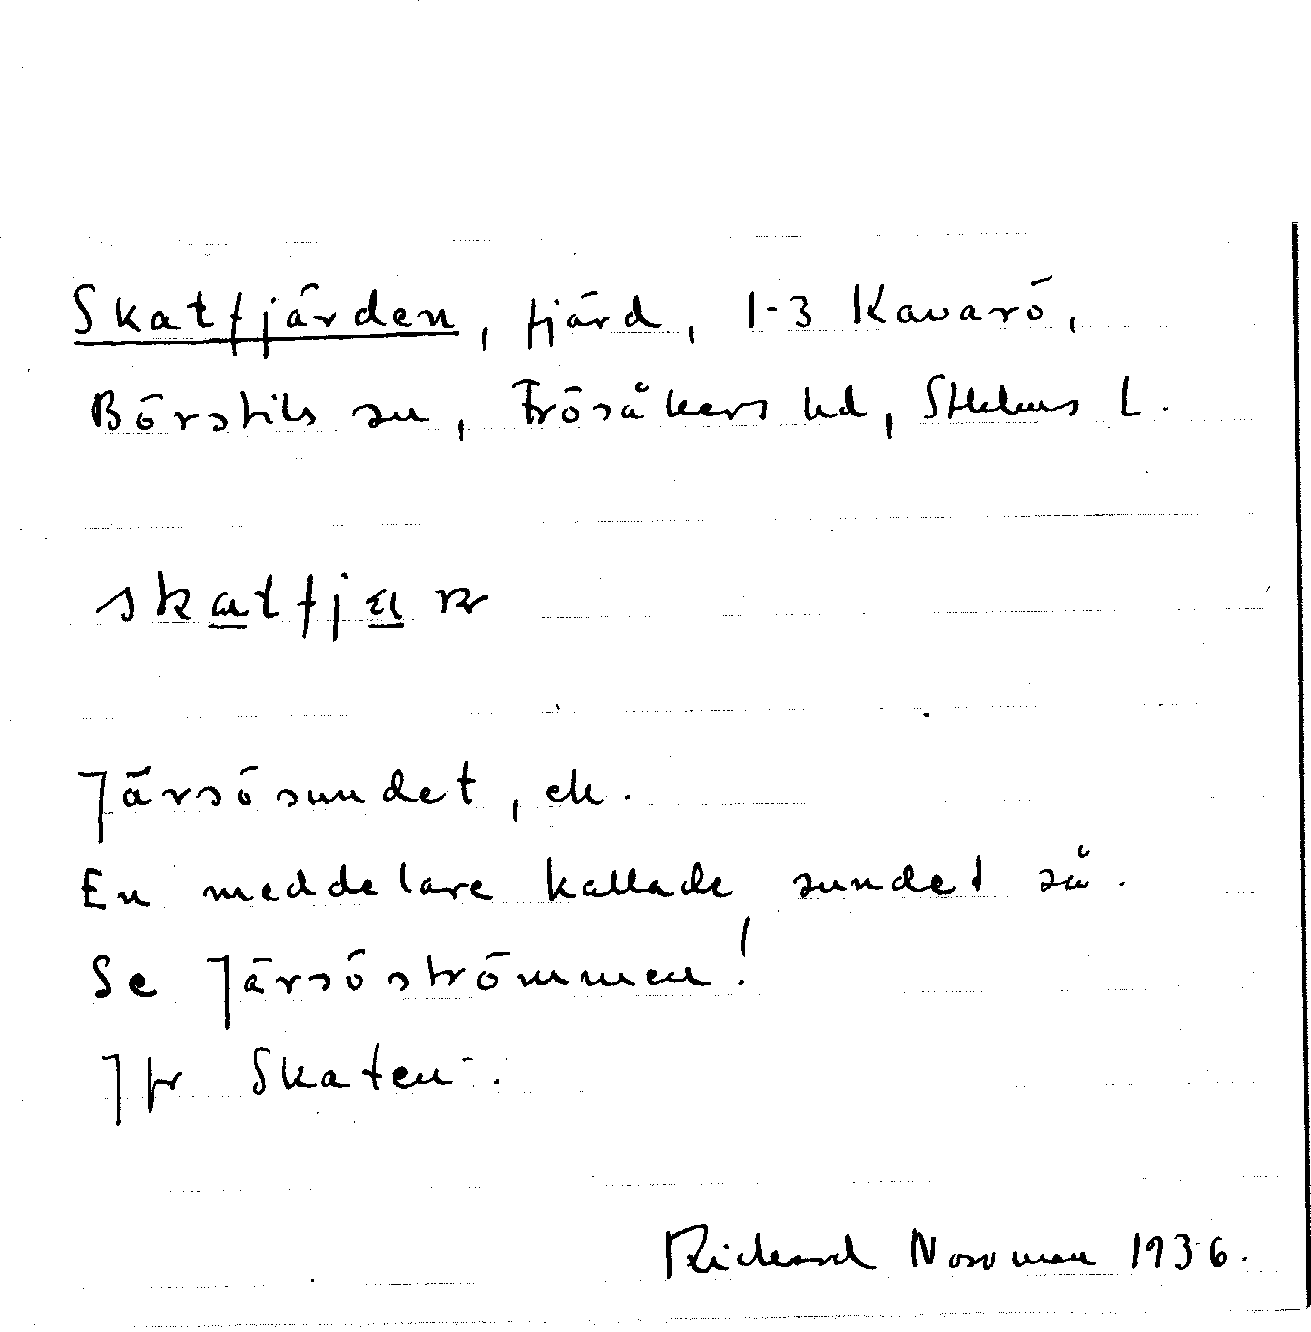 Skatfjärden, fjärd, 1-3 Kavarö,
Börstils sn, Frösåkers hd, Sthlms L.
skatfjan
Järsösundet, ek.
En meddelare kallade sundet så.
Se Järsöströmmen!
Jfr Skaten.
Rickard Norrman 1936.